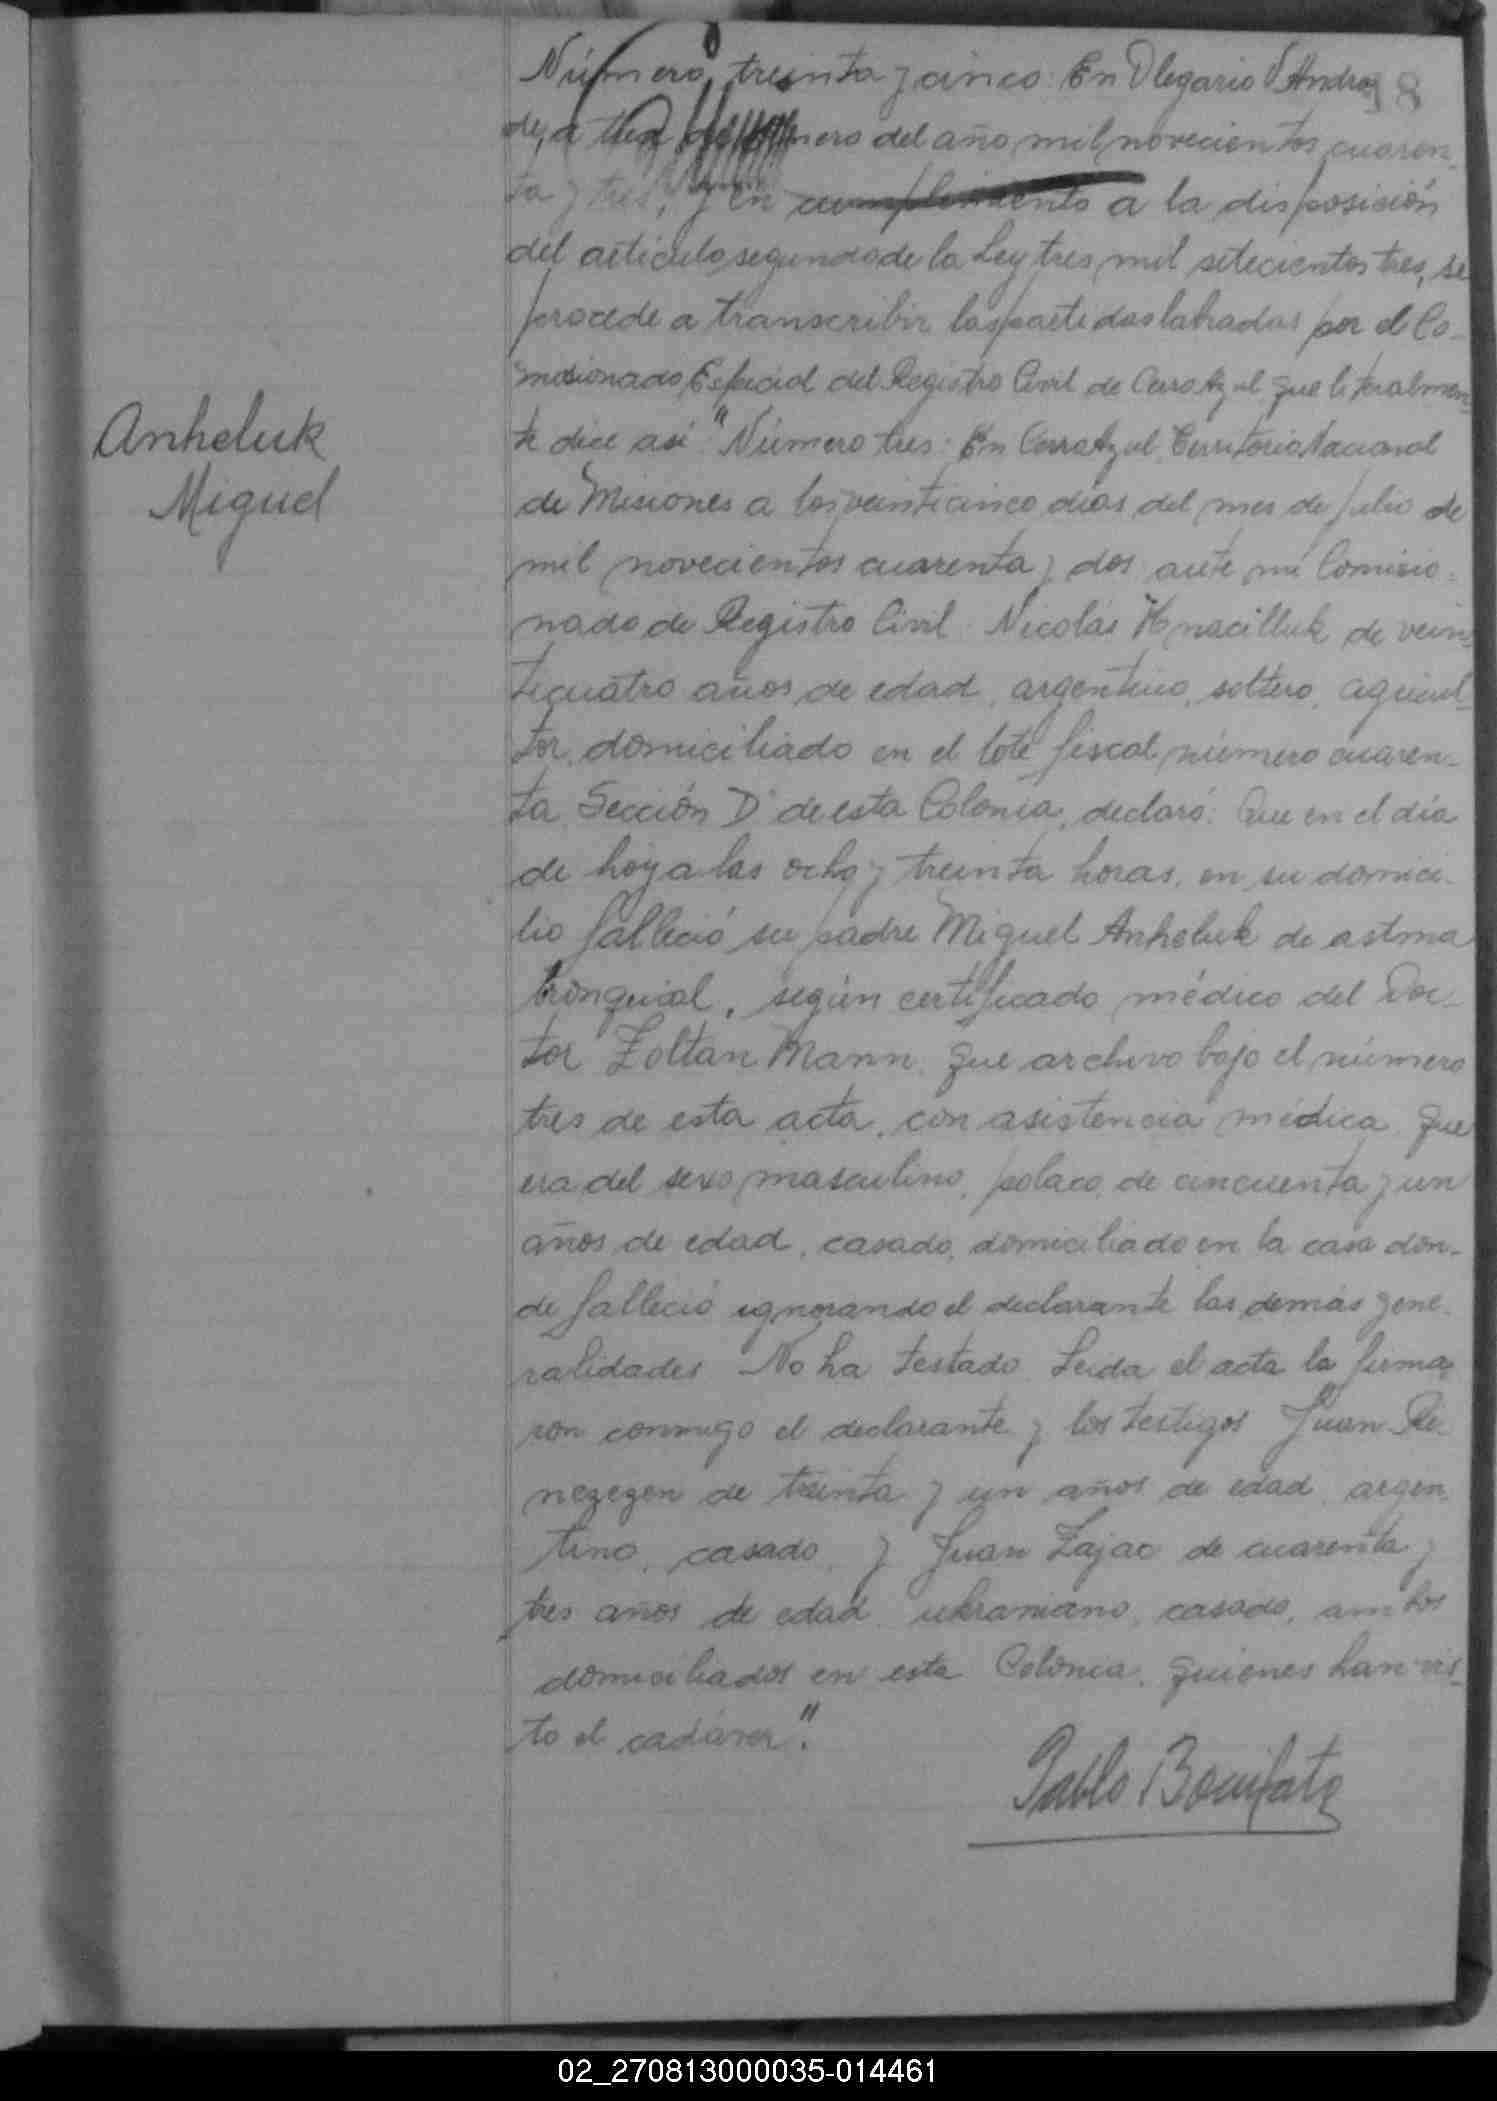 38
Número treinta y cinco: En Olegario V. Andra
de, a de enero del año mil novecientos cuaren-
ta y tres, y en cumplimiento a la disposición
del artículo segundo de la Ley tres mil setecientos tres, se
procede a transcribir las partidas labradas por el Co-
misionado Especial del Registro Civil de Cerro Azul que literalmen-
te dice asi "Número tres: En Cerro Azul, Territorio Nacional
Anheluk
Miguel
de Misiones a los veinticinco dias del mes de Julio de
mil novecientos cuarenta y dos ante mi Comisio-
nado de Registro Civil. Nicolás de vein-
ticuatro años de edad, argentino, soltero, agricul-
tor, domiciliado en el lote fiscal número cuaren-
ta, Sección D de esta Colonia, declaró: Que en el día
de hoy a las ocho y treinta horas, en su domici-
lio falleció su padre Miguel Anheluk de astma
bronquial, según certificado médico del Doc-
tor Zoltan Mann, que archivo bajo el número
tres de esta acta, con asistencia médica, que
era del sexo masculino, polaco, de cincuenta y un
años de edad, casado, domiciliado en la casa don-
de falleció ignorando el declarante las demás gene-
ralidades. No ha testado. Leida el acta la firma-
ron conmigo el declarante y los testigos Juan Re-
nezezen de treinta y un años de edad, argen-
tino, casado, y Juan Zajac de cuarenta y
tres años de edad, ukraniano, casado, ambos
domiciliados en esta Colonia, quienes han vis-
to el cadáver".
Pablo Bonifato
02_270813000035-014461